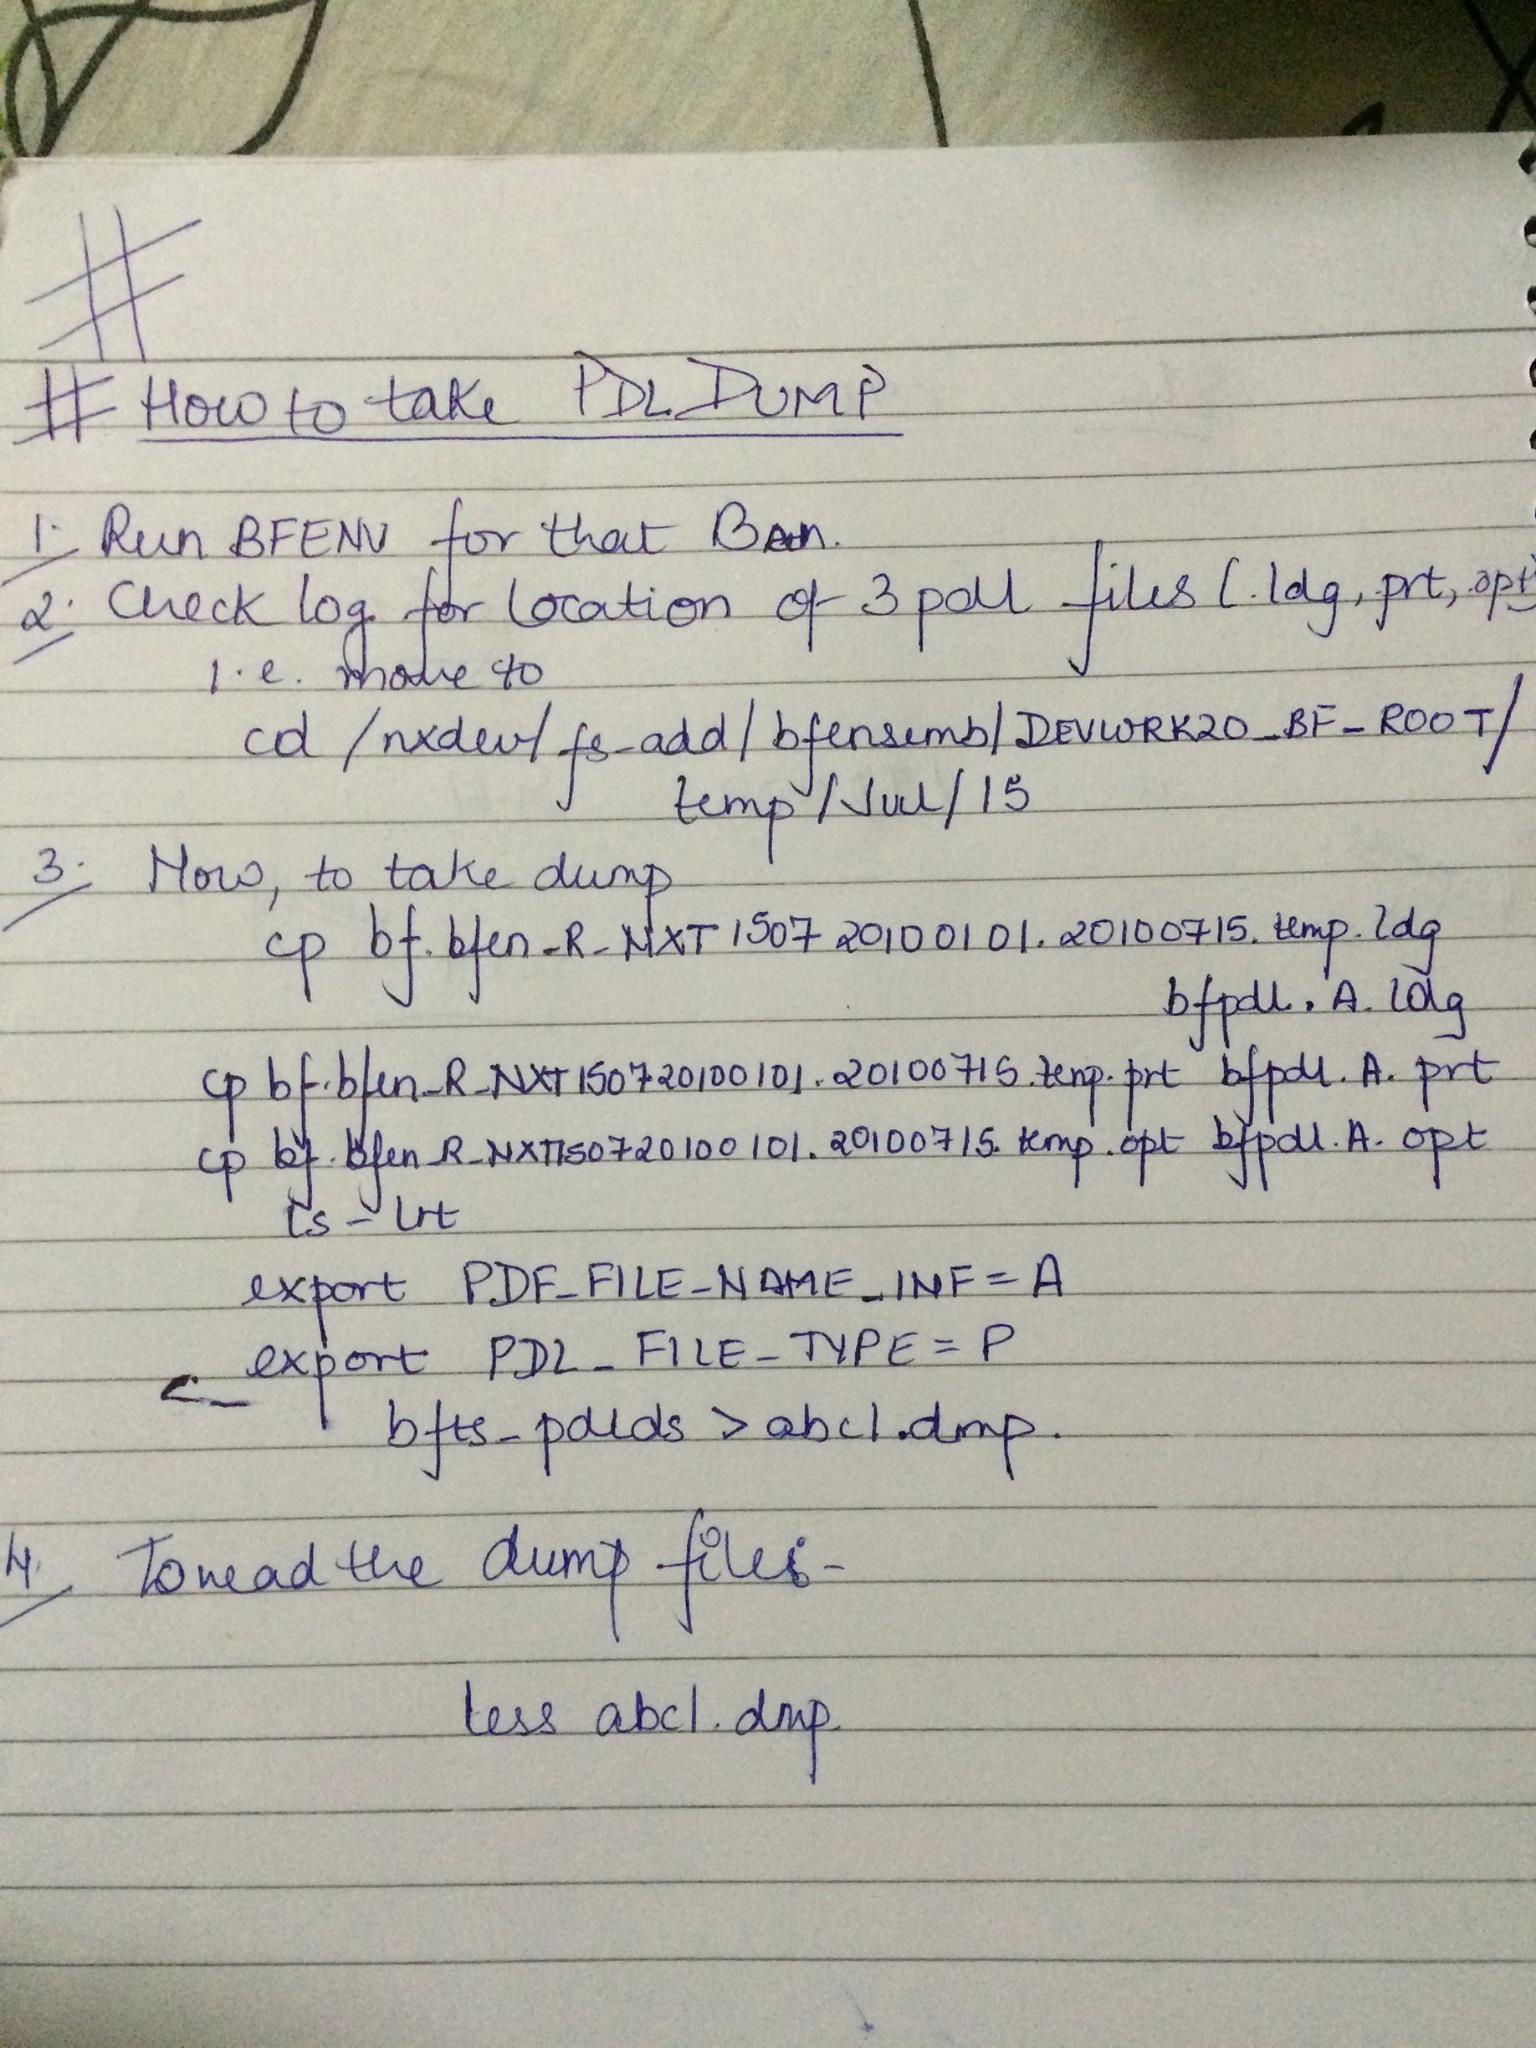 #
# How to take PDL DUMP
1. Run BFENV for that Ban.
2. Check log for location of 3 pdl files (.ldg, .prt, .opt)
i.e. move to
cd /nxdev/fs_add/bfensemb/DEVWRK20_BF_ROOT/
temp/Jul/15
3. Now, to take dump
cp bf.bfen_R_NXT150720100101.20100715.temp.ldg
bfpdl.A.ldg
cp bf.bfen_R_NXT150720100101.20100715.temp.prt bfpdl.A.prt
cp bf.bfen_R_NXT150720100101.20100715.temp.opt bfpdl.A.opt
ls -lrt
export PDF_FILE_NAME_INF=A
export PDL_FILE_TYPE=P
bfts_pdlds > abc1.dmp.
4. To read the dump files-
less abc1.dmp